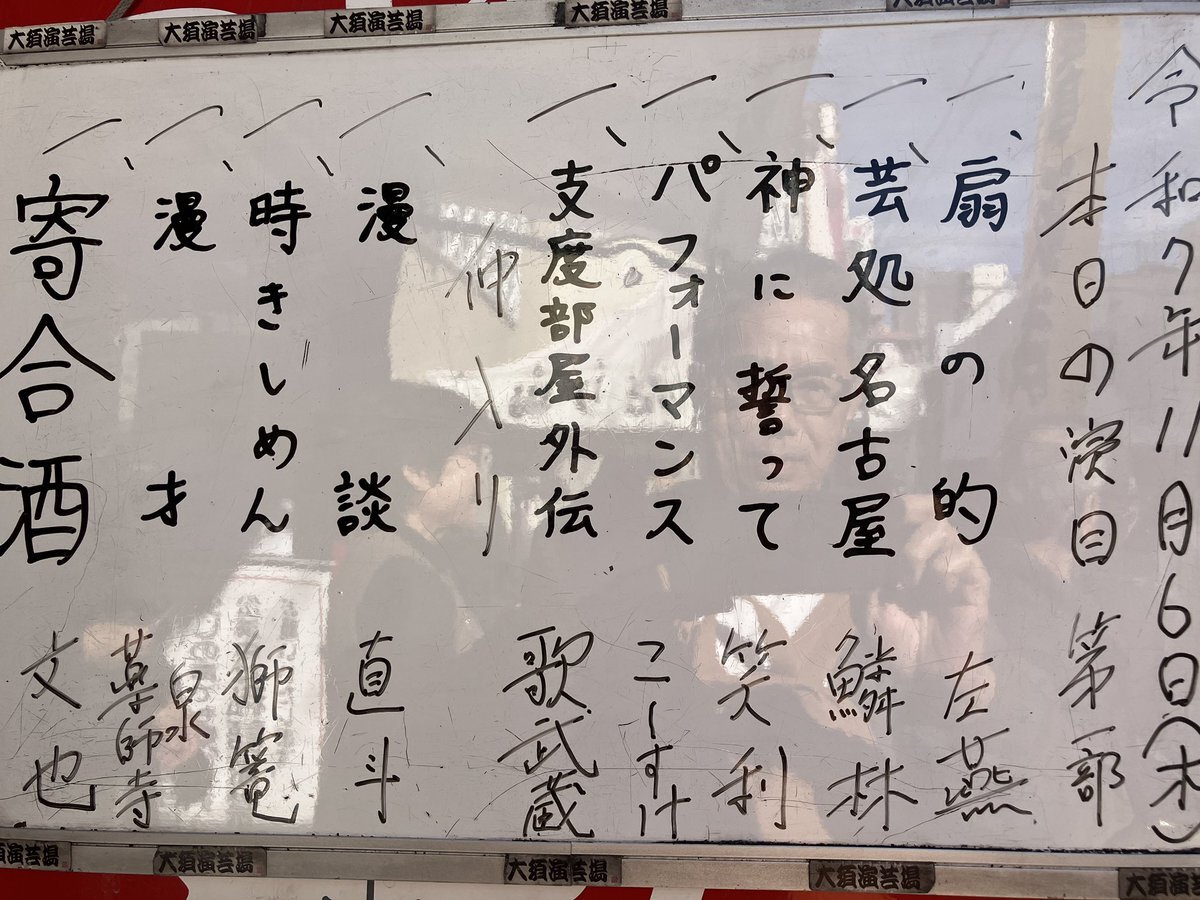 大須演芸場
大須演芸場
大須演芸場
大須演芸場
大須演芸場
令和7年11月6日(木)
本日の演目 第一部
一、扇の的 左燕
一、芸処名古屋 鱗林
一、神に誓って 笑利
一、パフォーマンス こーすけ
一、支度部屋外伝 歌武蔵
仲入り
一、漫談 直斗
一、時きしめん 獅篭
一、漫才 泉薬師寺
一、寄合酒 文也
大須演芸場
大須演芸場
大須演芸場
大須演芸場
大須演芸場